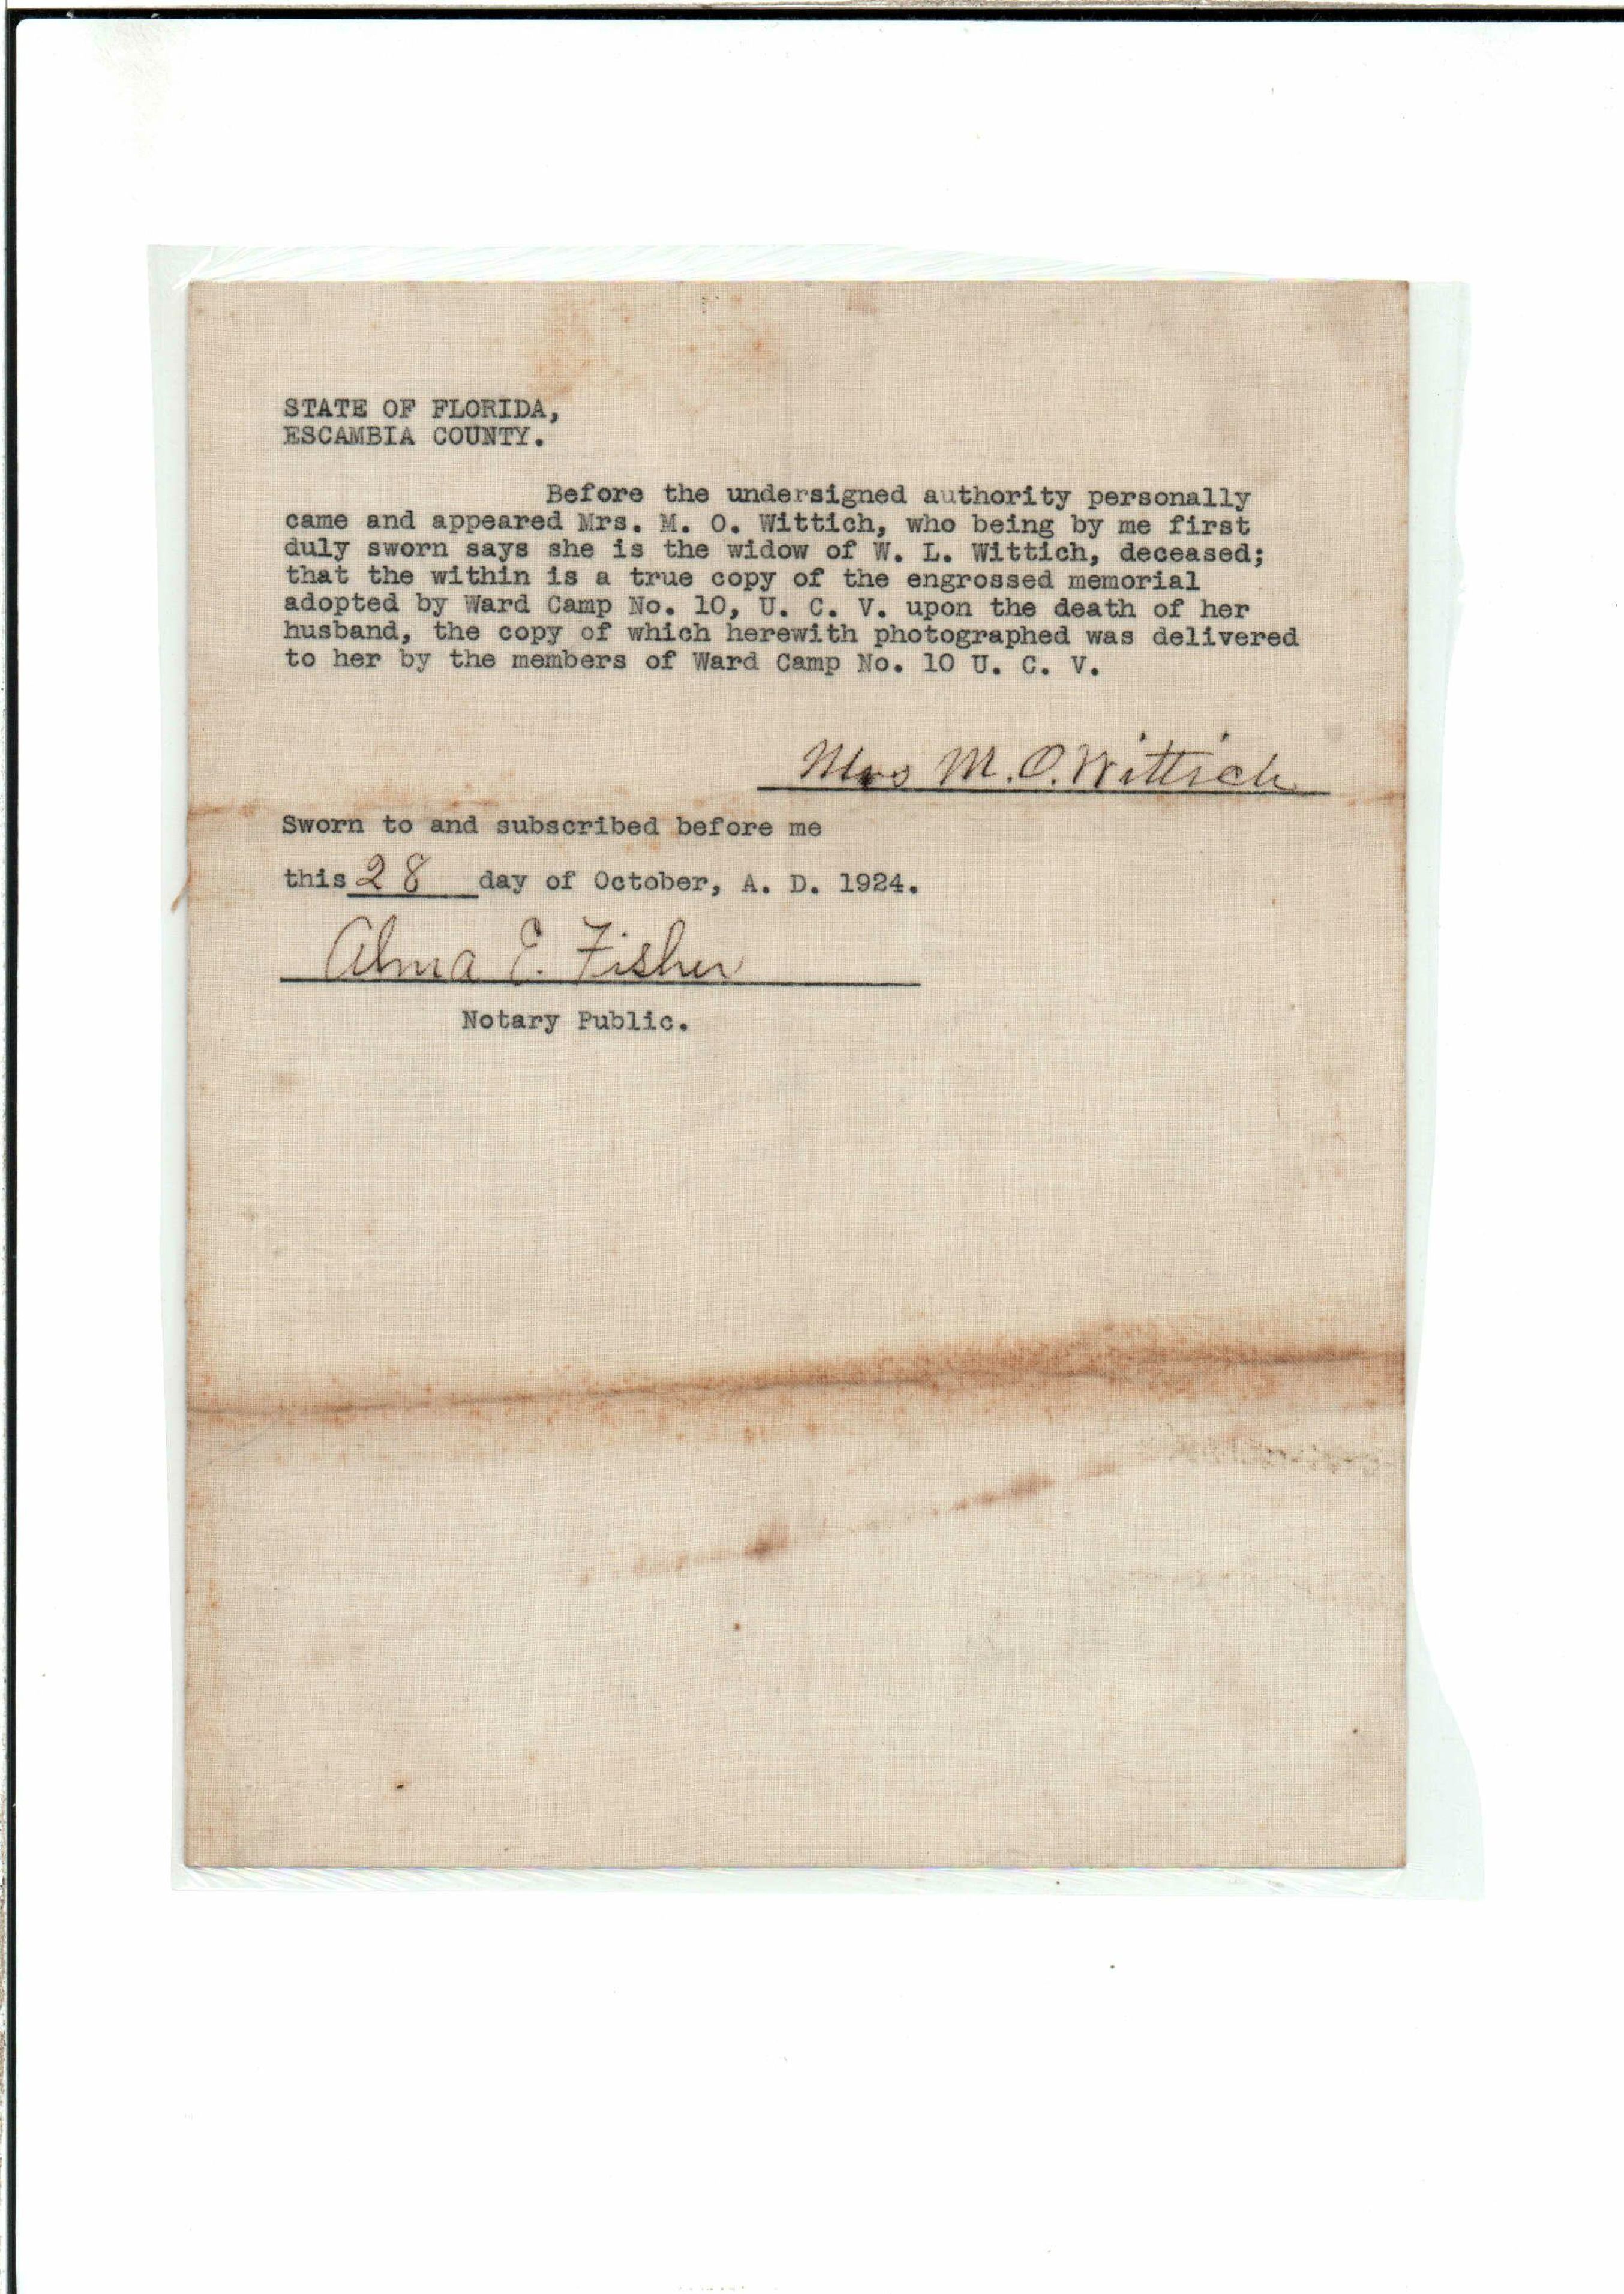 STATE OF FLORIDA,
ESCAMBIA COUNTY.
Before the undersigned authority personally
came and appeared Mrs. M. O. Wittich, who being by me first
duly sworn says she is the widow of W. L. Wittich, deceased;
that the within is a true copy of the engrossed memorial
adopted by Ward Camp No. 10, U. C. V. upon the death of her
husband, the copy of which herewith photographed was delivered
to her by the members of Ward Camp No. 10 U. C. V.
Mrs M. O. Wittich
Sworn to and subscribed before me
this 28 day of October, A. D. 1924.
Alma E. Fisher
Notary Public.